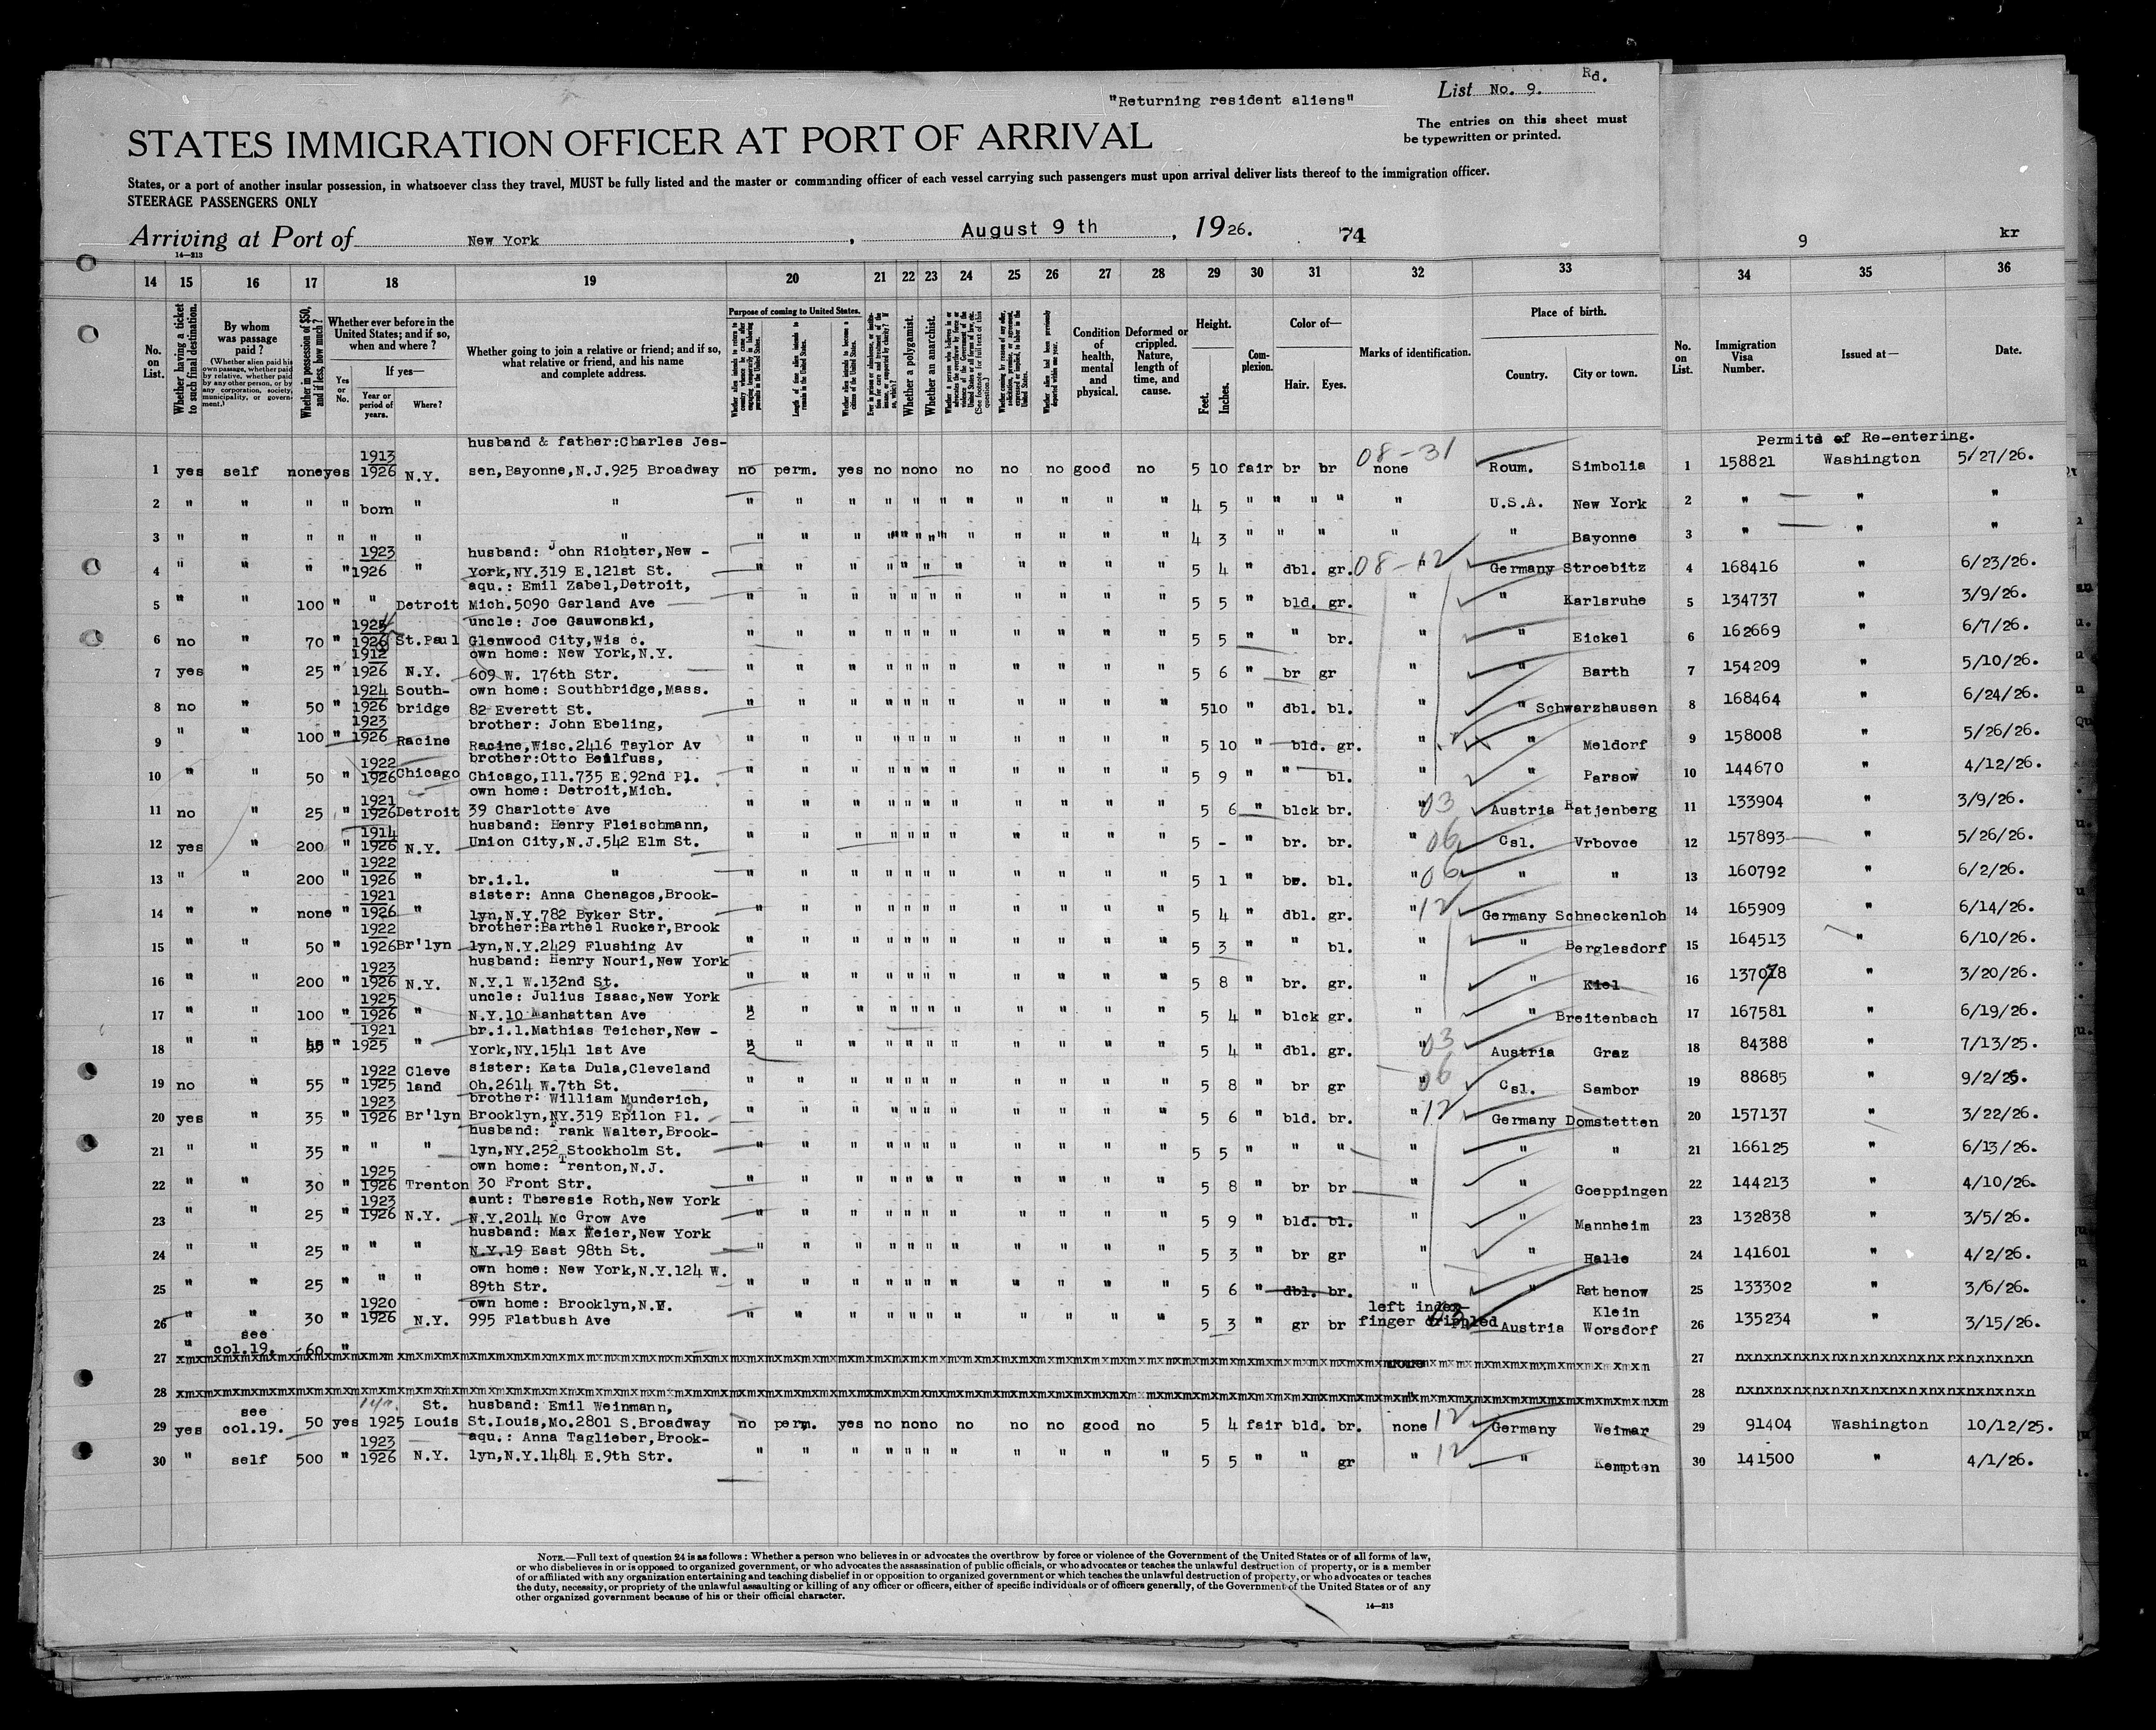 "Returning resident aliens"
List No. 9. Rd.
The entries on this sheet must
be typewritten or printed.
STATES IMMIGRATION OFFICER AT PORT OF ARRIVAL
States, or a port of another insular possession, in whatsoever class they travel, MUST be fully listed and the master or commanding officer of each vessel carrying such passengers must upon arrival deliver lists thereof to the immigration officer.
STEERAGE PASSENGERS ONLY
Arriving at Port of New York, August 9 th, 1926. 74 9 kr
14—213
14 15 16 17 18 19 20 21 22 23 24 25 26 27 28 29 30 31 32 33 34 35 36
No. on List.
Whether having a ticket to such final destination.
By whom was passage paid?
(Whether alien paid his own passage, whether paid by relative, whether paid by any other person, or by any corporation, society, municipality, or government.)
Whether in possession of $50, and if less, how much?
Whether ever before in the United States; and if so, when and where?
Yes or No.
If yes—
Year or period of years.
Where?
Whether going to join a relative or friend; and if so, what relative or friend, and his name and complete address.
Purpose of coming to United States.
Length of time alien intends to remain in the United States.
Whether alien intends to become a citizen of the United States.
Whether a polygamist.
Whether an anarchist.
Condition of health, mental and physical.
Deformed or crippled. Nature, length of time, and cause.
Height.
Feet. Inches.
Complexion.
Color of—
Hair. Eyes.
Marks of identification.
Place of birth.
Country. City or town.
No. on List.
Immigration Visa Number.
Issued at—
Date.
Permits of Re-entering.
husband & father:Charles Jes-
1913
1 yes self none yes 1926 N.Y. sen,Bayonne,N.J.925 Broadway no perm. yes no no no no no no good no 5 10 fair br br 08-31 none Roum. Simbolia 1 158821 Washington 5/27/26.
2 " " " " born " " " " " " " " " " " " " 4 5 " " " " " U.S.A. New York 2 " " "
3 " " " " " " " " " " " " " " " " " " 4 3 " " " " " Bayonne 3 " " "
1923 husband: John Richter,New -
4 " " " " 1926 " York,NY.319 E.121st St. " " " " " " " " " " " 5 4 " dbl. gr. 08-12 " Germany Stroebitz 4 168416 " 6/23/26.
aqu.: Emil Zabel,Detroit,
5 " " 100 " " Detroit Mich.5090 Garland Ave " " " " " " " " " " " 5 5 " bld. gr. " " Karlsruhe 5 134737 " 3/9/26.
1925 uncle: Joe Gauwonski,
6 no " 70 " 1926 St.Paul Glenwood City,Wis c. " " " " " " " " " " " 5 5 " " br. " " Eickel 6 162669 " 6/7/26.
1912 own home: New York,N.Y.
7 yes " 25 " 1926 N.Y. 609 W. 176th Str. " " " " " " " " " " " 5 6 " br gr " " Barth 7 154209 " 5/10/26.
1924 South- own home: Southbridge,Mass.
8 no " 50 " 1926 bridge 82 Everett St. " " " " " " " " " " " 510 " dbl. bl. " " Schwarzhausen 8 168464 " 6/24/26.
1923 brother: John Ebeling,
9 " " 100 " 1926 Racine Racine,Wisc.2416 Taylor Av " " " " " " " " " " " 5 10 " bld. gr. " " Meldorf 9 158008 " 5/26/26.
1922 brother:Otto Beilfuss,
10 " " 50 " 1926 Chicago Chicago,Ill.735 E.92nd Pl. " " " " " " " " " " " 5 9 " " bl. " " Parsow 10 144670 " 4/12/26.
own home: Detroit,Mich.
1921
11 no " 25 " 1926 Detroit 39 Charlotte Ave " " " " " " " " " " " 5 6 " blck br. " 03 Austria Ratjenberg 11 133904 " 3/9/26.
1914 husband: Henry Fleischmann,
12 yes " 200 " 1926 N.Y. Union City,N.J.542 Elm St. " " " " " " " " " " " 5 - " br. br. " 06 Csl. Vrbovce 12 157893 " 5/26/26.
1922
13 " " 200 " 1926 " br.i.l. " " " " " " " " " " " " 5 1 " br. bl. " 06 " " 13 160792 " 6/2/26.
1921 sister: Anna Chenagos,Brook-
14 " " none " 1926 " lyn,N.Y.782 Byker Str. " " " " " " " " " " " 5 4 " dbl. gr. " 12 Germany Schneckenloh 14 165909 " 6/14/26.
1922 brother:Barthel Rucker,Brook
15 " " 50 " 1926 Br'lyn lyn,N.Y.2429 Flushing Av " " " " " " " " " " " 5 3 " " bl. " " Berglesdorf 15 164513 " 6/10/26.
1923 husband: Henry Nouri,New York
16 " " 200 " 1926 N.Y. N.Y.1 W.132nd St. " " " " " " " " " " " 5 8 " br. gr. " " Kiel 16 137078 " 3/20/26.
1925 uncle: Julius Isaac,New York
17 " " 100 " 1926 " N.Y.10 Manhattan Ave " 2 " " " " " " " " " " 5 4 " blck gr. " " Breitenbach 17 167581 " 6/19/26.
1921 br.i.l.Mathias Teicher,New -
18 " " " 1925 " York,NY.1541 1st Ave " 2 " " " " " " " " " " 5 4 " dbl. gr. " 03 Austria Graz 18 84388 " 7/13/25.
1922 Cleve sister: Kata Dula,Cleveland
19 no " 55 " 1925 land Oh.2614 W.7th St. " " " " " " " " " " " 5 8 " br gr " 06 Csl. Sambor 19 88685 " 9/2/25.
1923 brother: William Munderich,
20 yes " 35 " 1926 Br'lyn Brooklyn,NY.319 Epilon Pl. " " " " " " " " " " " 5 6 " bld. br. " 12 Germany Domstetten 20 157137 " 3/22/26.
husband: Frank Walter,Brook-
21 " " 35 " " " lyn,NY.252 Stockholm St. " " " " " " " " " " " 5 5 " " " " " " 21 166125 " 6/13/26.
1925 own home: Trenton,N.J.
22 " " 30 " 1926 Trenton 30 Front Str. " " " " " " " " " " " 5 8 " br br " " Goeppingen 22 144213 " 4/10/26.
1923 aunt: Theresie Roth,New York
23 " " 25 " 1926 N.Y. N.Y.2014 Mc Grow Ave " " " " " " " " " " " 5 9 " bld. bl. " " Mannheim 23 132838 " 3/5/26.
husband: Max Meier,New York
24 " " 25 " " " N.Y.19 East 98th St. " " " " " " " " " " " 5 3 " br gr " " Halle 24 141601 " 4/2/26.
own home: New York,N.Y.124 W.
25 " " 25 " " " 89th Str. " " " " " " " " " " " 5 6 " dbl. br. " " Rathenow 25 133302 " 3/6/26.
1920 own home: Brooklyn,N.Y. left index- Klein
26 " " 30 " 1926 N.Y. 995 Flatbush Ave " " " " " " " " " " " 5 3 " gr br finger crippled 03 Austria Worsdorf 26 135234 " 3/15/26.
see
27 " col.19. 60 " none 27
28 28
see St. husband: Emil Weinmann,
29 yes col.19. 50 yes 1925 Louis St.Louis,Mo.2801 S.Broadway no perm. yes no no no no no no good no 5 4 fair bld. br. none 12 Germany Weimar 29 91404 Washington 10/12/25.
1923 aqu.: Anna Taglieber,Brook-
30 " self 500 " 1926 N.Y. lyn,N.Y.1484 E.9th Str. " " " " " " " " " " " 5 5 " " gr " 12 " Kempten 30 141500 " 4/1/26.
NOTE.—Full text of question 24 is as follows: Whether a person who believes in or advocates the overthrow by force or violence of the Government of the United States or of all forms of law,
or who disbelieves in or is opposed to organized government, or who advocates the assassination of public officials, or who advocates or teaches the unlawful destruction of property, or is a member
of or affiliated with any organization entertaining and teaching disbelief in or opposition to organized government or which teaches the unlawful destruction of property, or who advocates or teaches
the duty, necessity, or propriety of the unlawful assaulting or killing of any officer or officers, either of specific individuals or of officers generally, of the Government of the United States or of any
other organized government because of his or their official character.
14—213